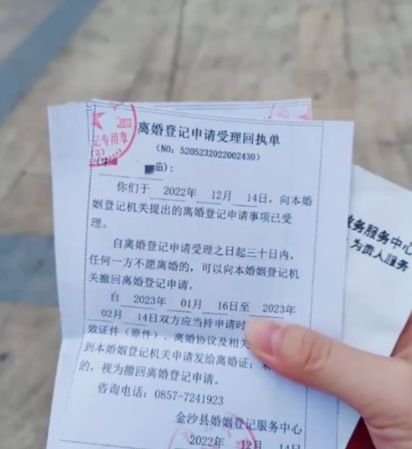 离婚登记申请受理回执单
(NO: 5205232022002430)
记专用章
(2)
茹):
你们于 2022年 12月 14日,向本婚
姻登记机关提出的离婚登记申请事项已受
理。
自离婚登记申请受理之日起三十日内,
任何一方不愿离婚的,可以向本婚姻登记机
关撤回离婚登记申请。
自 2023年 01月 16日至 2023年
02月 14日双方应当持申请时
效证件(原件)、离婚协议及相关
到本婚姻登记机关申请发给离婚证;
的,视为撤回离婚登记申请。
咨询电话:0857-7241923
金沙县婚姻登记服务中心
2022年 12月 14日
政务服务中心
为贵人服务